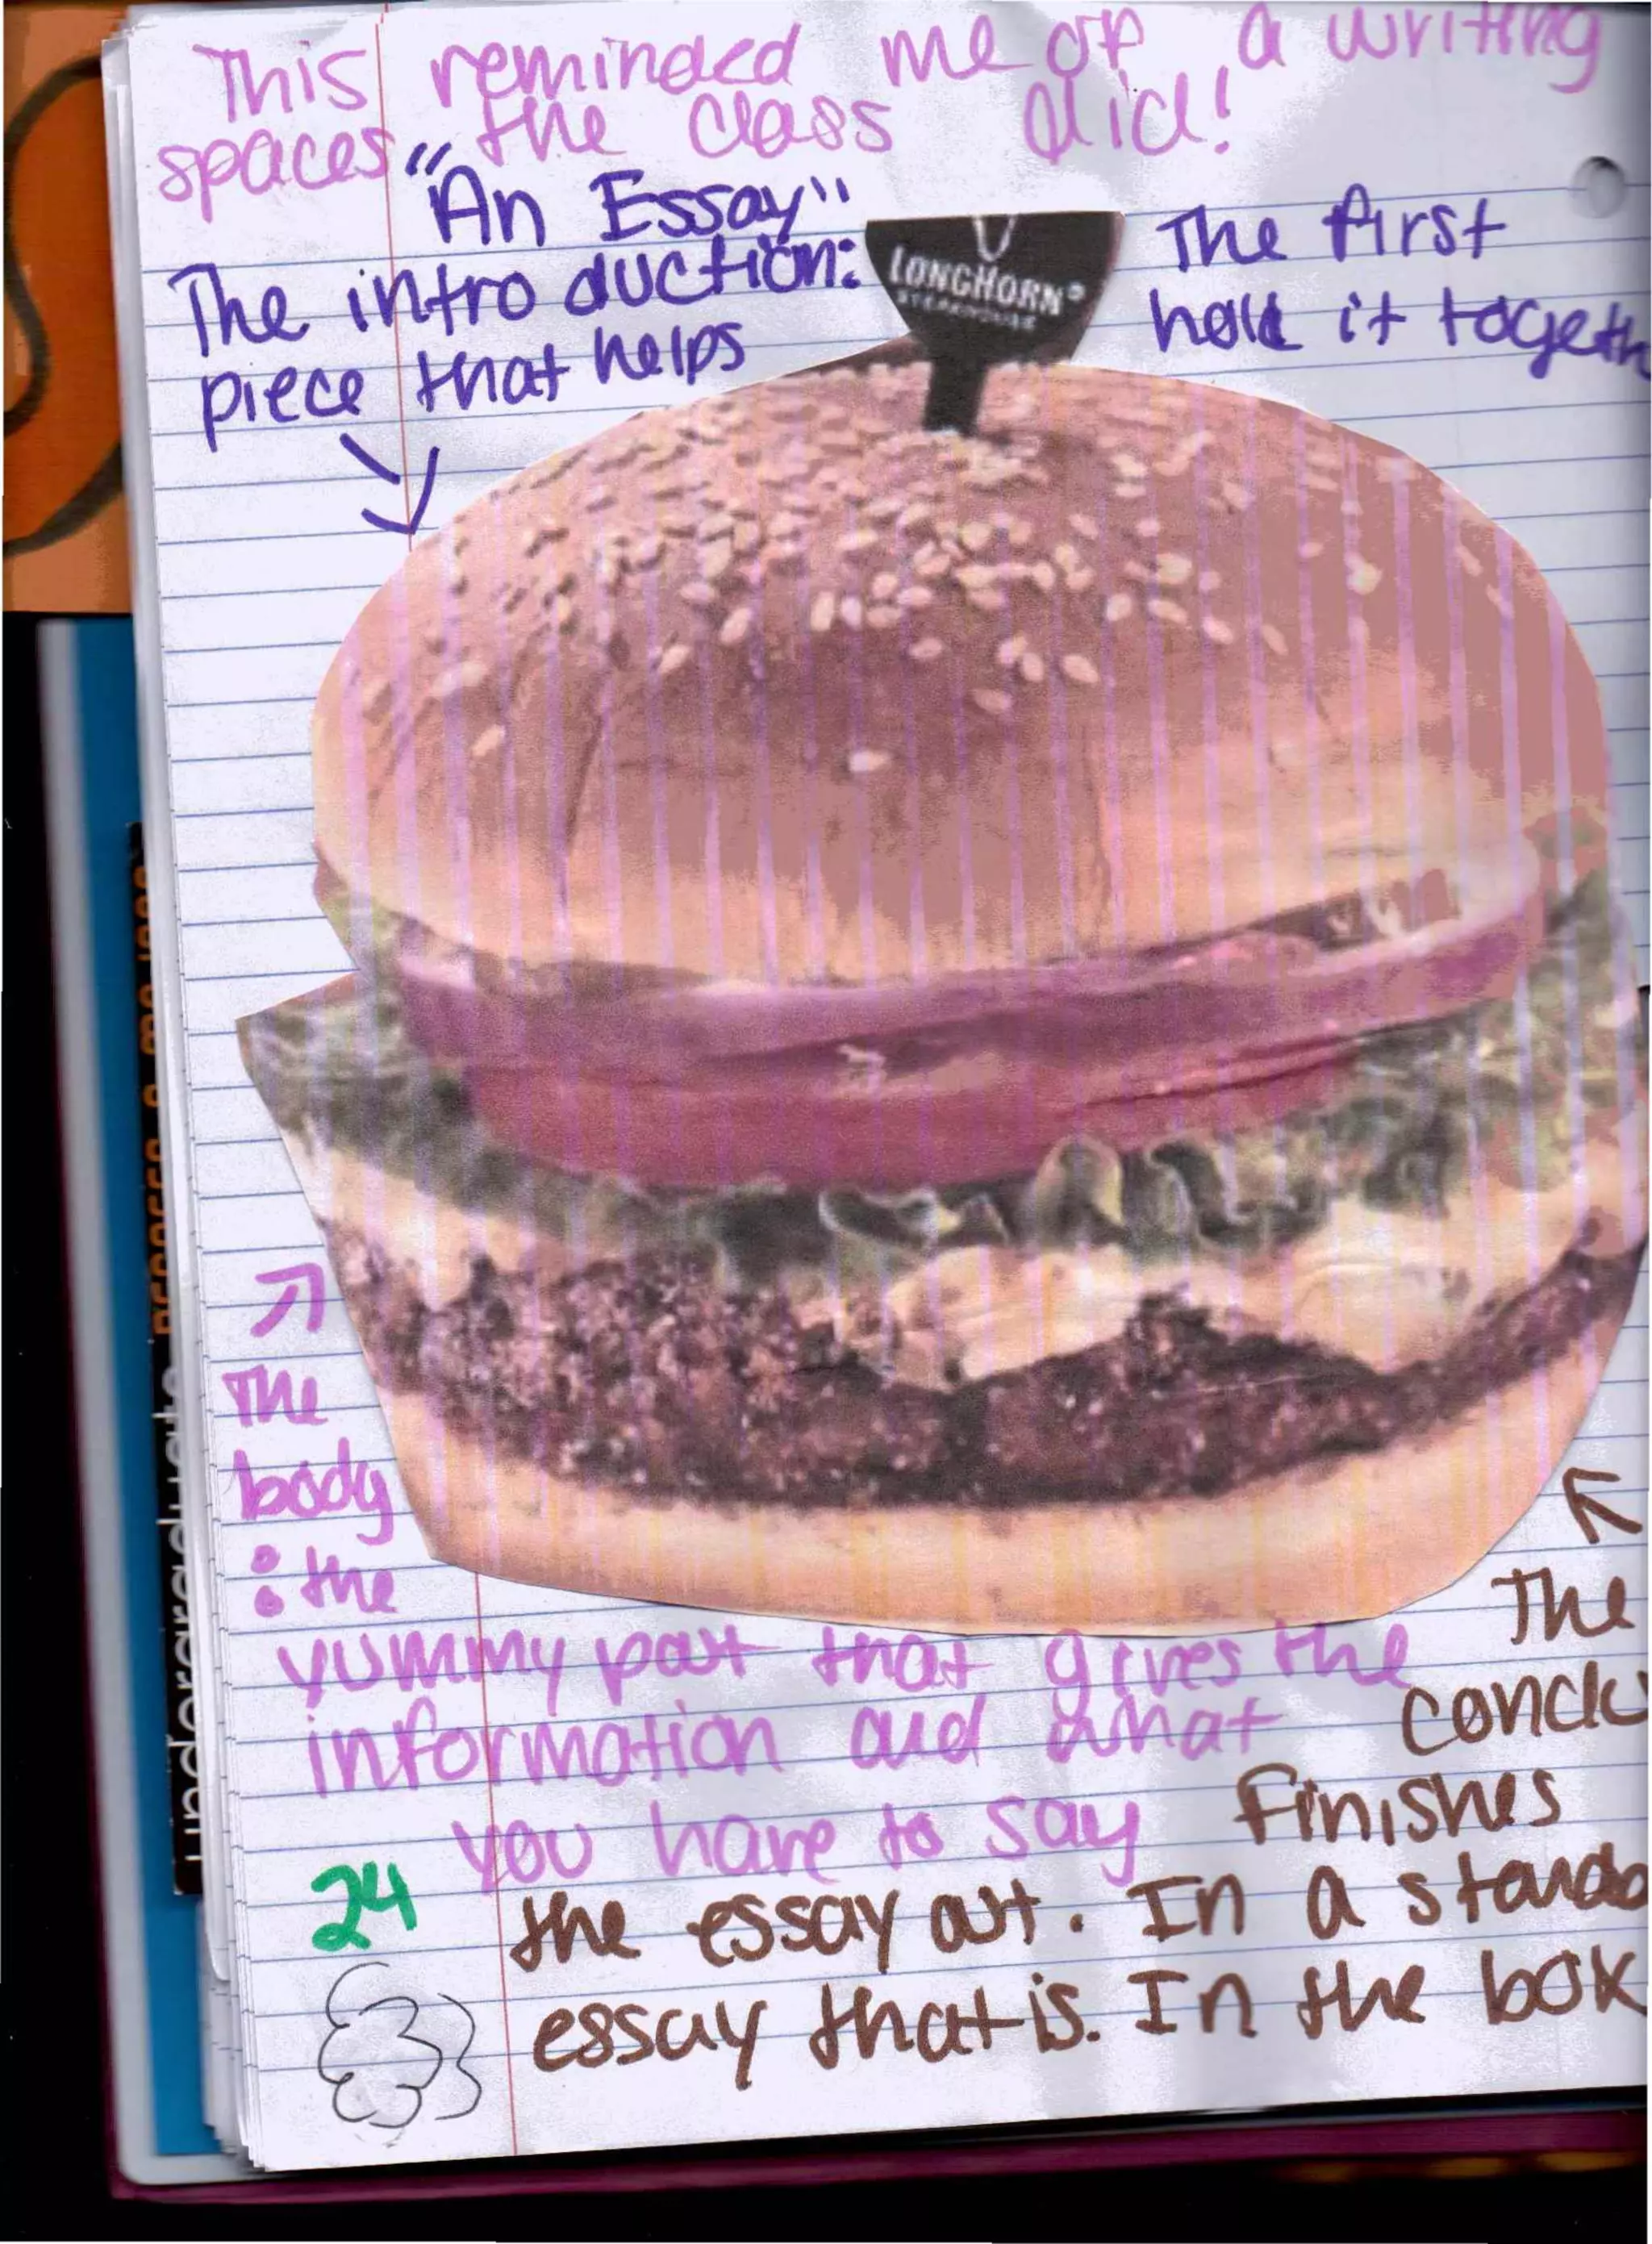 This reminded me of a writing
spaces the class did!
"An Essay"
The introduction: The first
piece that helps hold it togeth
LONGHORN®
STEAKHOUSE
The
body
: the
yummy part that gives the
information and what
you have to say
The
conclu
finishes
the essay out. In a standa
essay that is. In the box
24
undergraduate